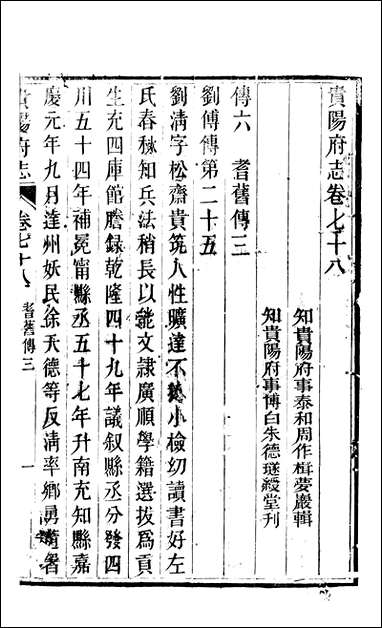 貴陽府志卷七十八
知貴陽府事泰和周作楫夢巖輯
知貴陽府事博白朱德璲綬堂刊
傳六　耆舊傳三
劉傅傳第二十五
劉清字松齋貴筑人性曠達不㧱小檢幼讀書好左
氏春秋知兵法稍長以能文隸廣順學籍選拔爲貢
生充四庫館謄錄乾隆四十九年議叙縣丞分發四
川五十四年補冕甯縣丞五十七年升南充知縣嘉
慶元年九月達州妖民徐天德等反清率鄉勇
貴陽府志
卷七十八
耆舊傳三
一